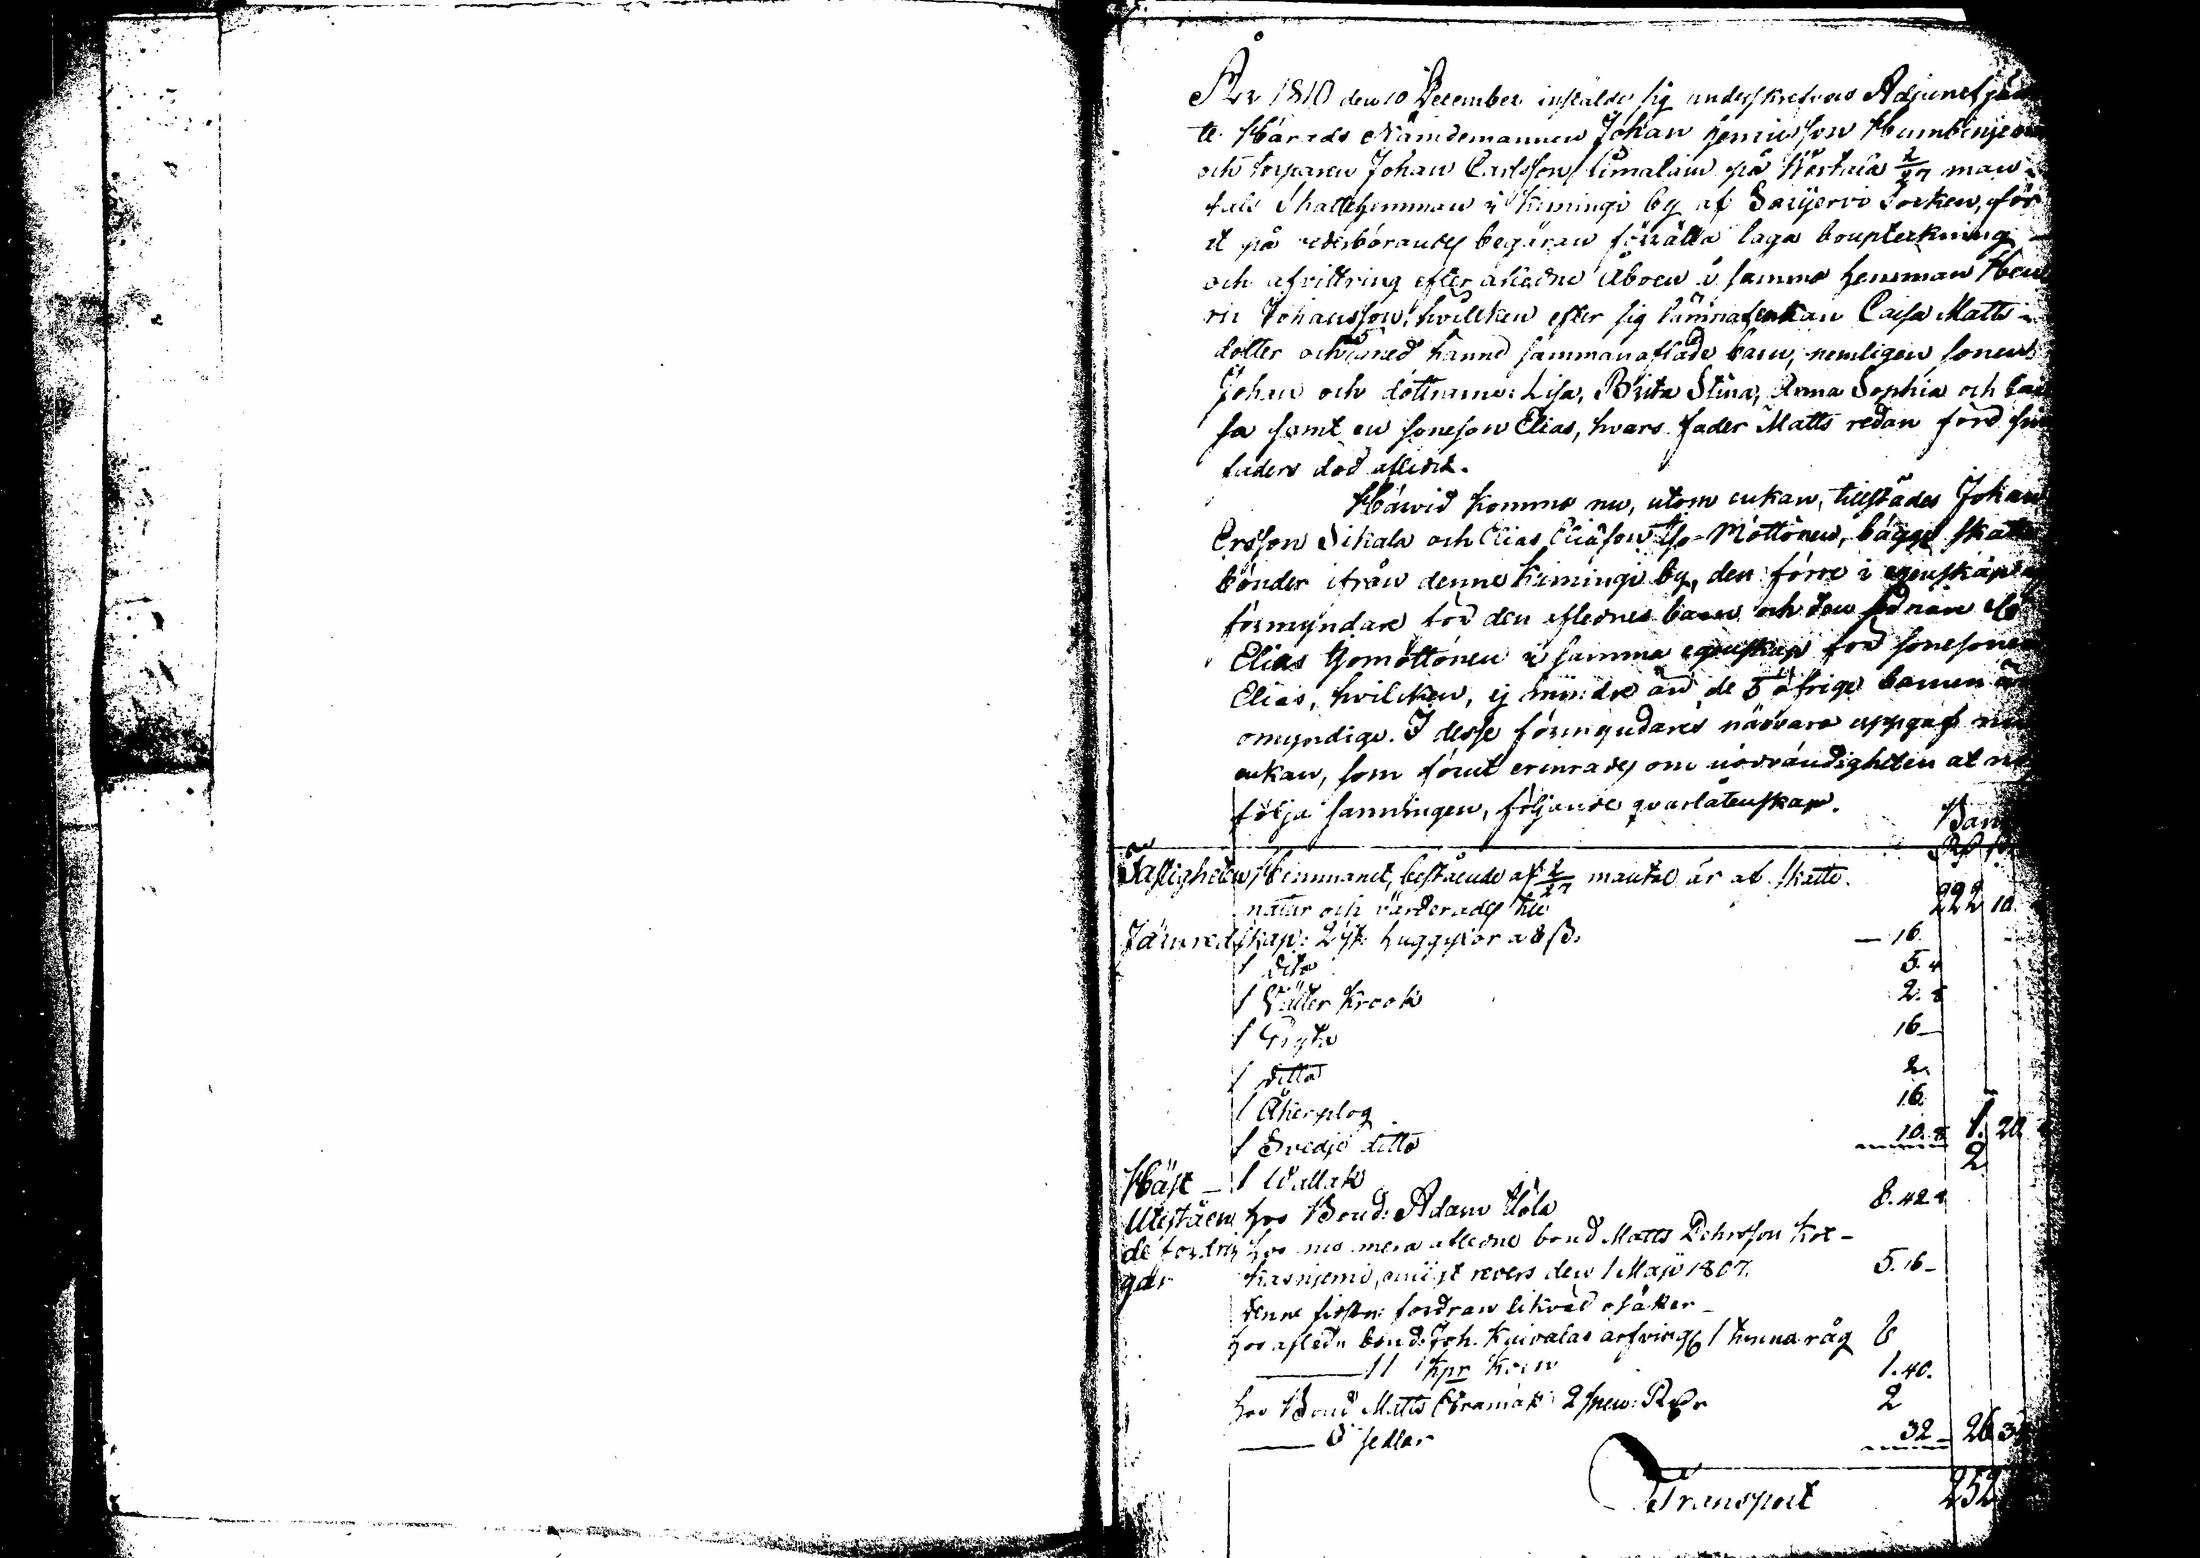 År 1810 den 10 December instälde sig underskrefven Adjunct jäm
te Härads Nämdemannen Johan Henricsson Humbinjemi
och torparen Johan Carlsson Limalain på Kestaia man-
tals Skattehemman i Kimingi by af Sarijervi Socken, för
at på vederbörandes begäran förrätta laga bouptekning
och afvittring efter afledne Åboen å samma hemman Hen
ric Johansson, hvilken efter sig lämnat enkan Caisa Matts-
dotter och med henne sammanaflade barn, nemligen sonen
Johan och döttrarna: Lisa, Brita Stina, Anna Sophia och Cai
sa samt en soneson Elias, hvars fader Matts redan förd sin
faders död afledit.
Härvid kommo nu, utom enkan, tillstädes Johan
Ersson Sikala och Elias Eliasson Iso-Möttönen, bägge skatte
bönder ifrån denne Kimingi by, den förre i egenskap af
förmyndare för den aflednes barn och den sednare
Elias Isomöttönen i samma egenskap för sonesonen
Elias, hvilcken, ej mindre än de 5 öfrige barnen är
omyndige. I desse förmyndares närvaro uppgaf nu
enkan, som förut erinrades om nödvändigheten at
följa sanningen, följande qvarlåtenskap.
Banco
Rd s
Fastigheten Hemmanet, bestående af mantal är af skatte
natur och värderades till 222 10
Järnredskap: 2 st: huggyxor a 8 ß. — 16
1 dito 5.4
1 Välter Krook 2.8
1 Gryta 16 —
1 ditto 2
1 Åkerplog 16
1 Svedje ditto 10.8 1. 20
Häst — 1 Wallak 2
Uteståen hos Bond: Adam Höla 8.42
de fordrin hos nu mera afledne bond Matts Kol-
gar kasniemi, enligt revers den 1 Maji 1807. 5.16 —
denne sistn: fordran likväl osäker —
hos afledn bond: Joh. Kuivalas arfvingar 1 tunna råg 6
— 11 kpr Korn 1.40.
hos Bond Matts 2 Rdr 2
— sedlar 32 — 26 3
Transport 252